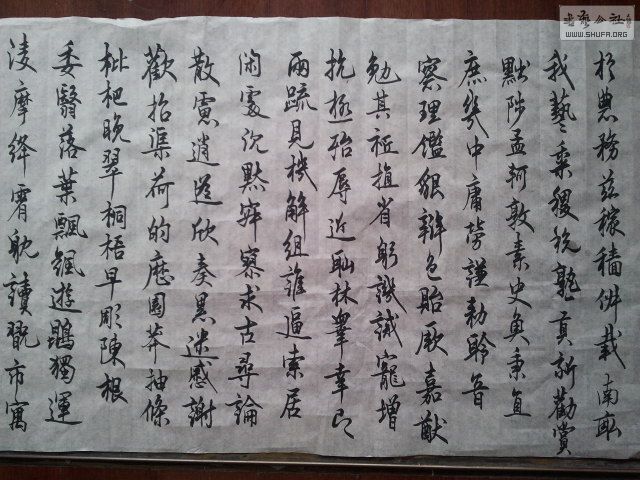 於農務茲稼穡俶載南畝
我藝黍稷稅熟貢新勸賞
黜陟孟軻敦素史魚秉直
庶幾中庸勞謹勅聆音
察理鑑貌辯色貽厥嘉猷
勉其祗植省躬譏誡寵增
抗極殆辱近恥林睾幸即
兩疏見機解組誰逼索居
閑處沉默寂寥求古尋論
散慮逍遙欣奏累遣感謝
歡招渠荷的歷園莽抽條
枇杷晚翠桐梧早彫陳根
委翳落葉飄颻遊鵾獨運
凌摩絳霄耽讀翫市寓
书艺公社
WWW.SHUFA.ORG